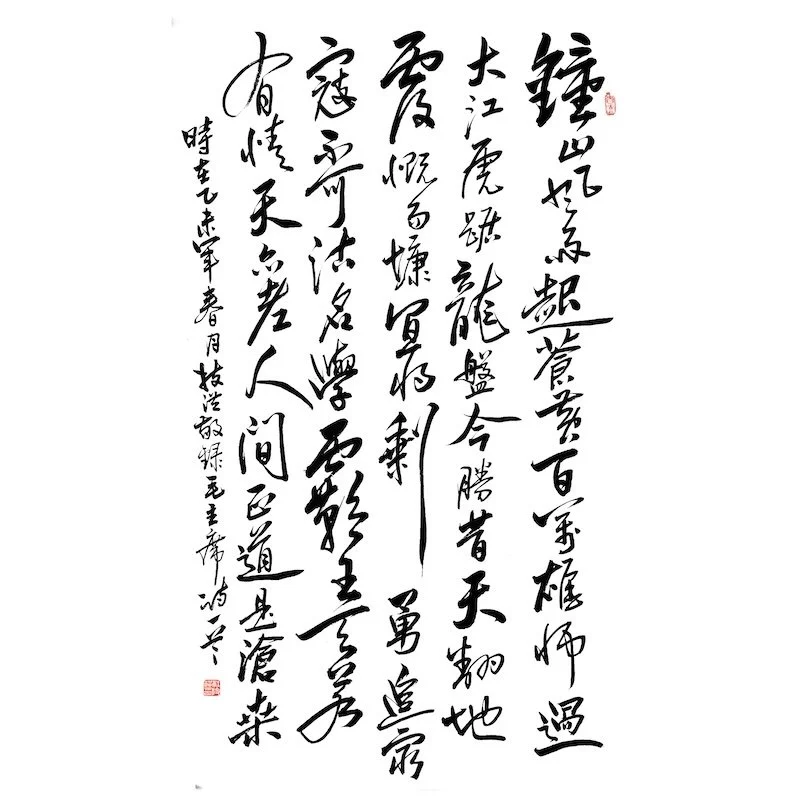 鐘山風雨起蒼黃百萬雄師過
大江虎踞龍盤今勝昔天翻地
覆慨而慷宜將剩勇追窮
寇不可沽名學霸王天若
有情天亦老人間正道是滄桑
時在乙未年春月敬録毛主席詩一首